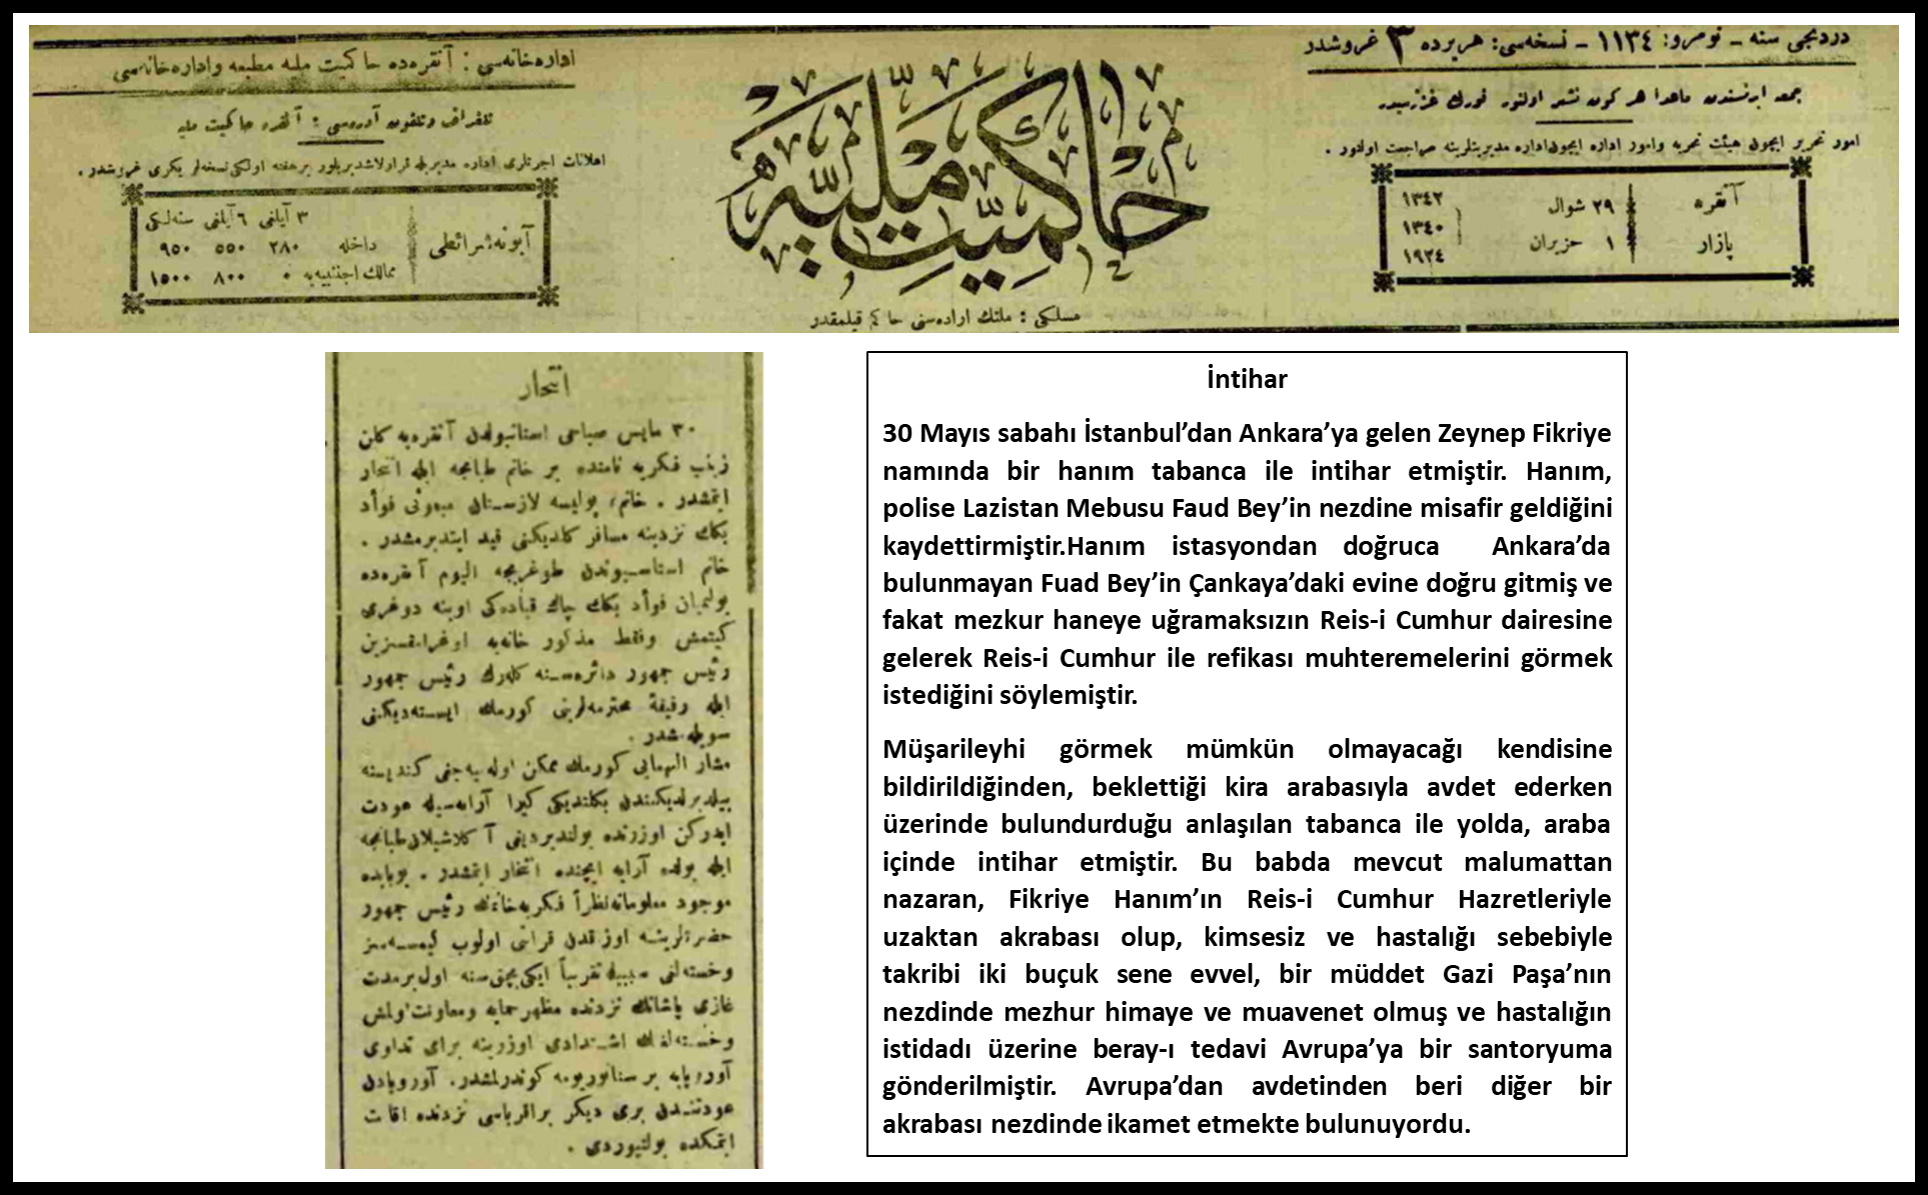 دردنجی سنه – نومرو: ١١٣٤ – نسخه‌سی: هر یرده ٣ غروشدر
جمعه ایرتسندن ماعدا هر کون نشر اولنور تورك غزته‌سیدر
امور تحریر ایچون هیئت تحریره وامور اداره ایچون اداره مدیریتلرینه مراجعت اولنور .
آنقره
پازار
٢٩ شوال
١ حزیران
١٣٤٢
١٣٤٠
١٩٢٤
حاکمیت ملیه
مسلکی : ملتك اراده‌سنی حاکم قیلمقدر
اداره‌خانه‌سی : آنقره‌ده حاکمیت ملیه مطبعه واداره‌خانه‌سی
تلغراف وتلفون آدره‌سی : آنقره حاکمیت ملیه
آبونه شرائطی
٣ آیلغی ٦ آیلغی سنه‌لکی
داخله ٢٨٠ ٥٥٠ ٩٥٠
ممالك اجنبیه‌یه ٠ ٨٠٠ ١٥٠٠
انتحار
٣٠ مایس صباحی استانبولدن آنقره‌یه کلن
زینب فکریه نامنده بر خانم طبانجه ایله انتحار
ایتمشدر . خانم، پولیسه لازستان مبعوثی فوأد
بكك نزدینه مسافر کلدیکنی قید ایتدیرمشدر .
خانم استاسیوندن طوغریجه الیوم آنقره‌ده
بولنمیان فوأد بكك چان قیاده‌کی اوینه دوغری
کیتمش وفقط مذکور خانه‌یه اوغرامقسزین
رئیس جمهور دائره‌سنه کله‌رك رئیس جمهور
ایله رفیقهٔ محترمه‌لرینی کورمك ایسته‌دیکنی
سویله‌مشدر .
مشار الیهمایی کورمك ممکن اوله‌یه‌جغی کندیسنه
بیلدیرلدیکندن بکلتدیکی کیرا آرابه‌سیله عودت
ایدرکن اوزرنده بولندیردیغی آکلاشیلان طبانجه
ایله یولده آرابه ایچنده انتحار ایتمشدر . بوبابده
موجود معلوماته نظراً فکریه خانمك رئیس جمهور
حضرتلرینه اوزقدن قرابتی اولوب کیمسه‌سز
وخسته‌لغی سببیله تقریباً ایکی بچق سنه اول بر مدت
غازی پاشانك نزدنده مظهر حمایه ومعاونت اولمش
وخسته‌لغك اشتدادی اوزرینه برای تداوی
آوروپایه بر سناتوریومه کوندرلمشدر. آوروپادن
عودتندن بری دیکر بر اقرباسی نزدنده اقامت
ایتمکده بولنیوردی .
İntihar
30 Mayıs sabahı İstanbul’dan Ankara’ya gelen Zeynep Fikriye
namında bir hanım tabanca ile intihar etmiştir. Hanım,
polise Lazistan Mebusu Faud Bey’in nezdine misafir geldiğini
kaydettirmiştir.Hanım istasyondan doğruca Ankara’da
bulunmayan Fuad Bey’in Çankaya’daki evine doğru gitmiş ve
fakat mezkur haneye uğramaksızın Reis-i Cumhur dairesine
gelerek Reis-i Cumhur ile refikası muhteremelerini görmek
istediğini söylemiştir.
Müşarileyhi görmek mümkün olmayacağı kendisine
bildirildiğinden, beklettiği kira arabasıyla avdet ederken
üzerinde bulundurduğu anlaşılan tabanca ile yolda, araba
içinde intihar etmiştir. Bu babda mevcut malumattan
nazaran, Fikriye Hanım’ın Reis-i Cumhur Hazretleriyle
uzaktan akrabası olup, kimsesiz ve hastalığı sebebiyle
takribi iki buçuk sene evvel, bir müddet Gazi Paşa’nın
nezdinde mezhur himaye ve muavenet olmuş ve hastalığın
istidadı üzerine beray-ı tedavi Avrupa’ya bir santoryuma
gönderilmiştir. Avrupa’dan avdetinden beri diğer bir
akrabası nezdinde ikamet etmekte bulunuyordu.